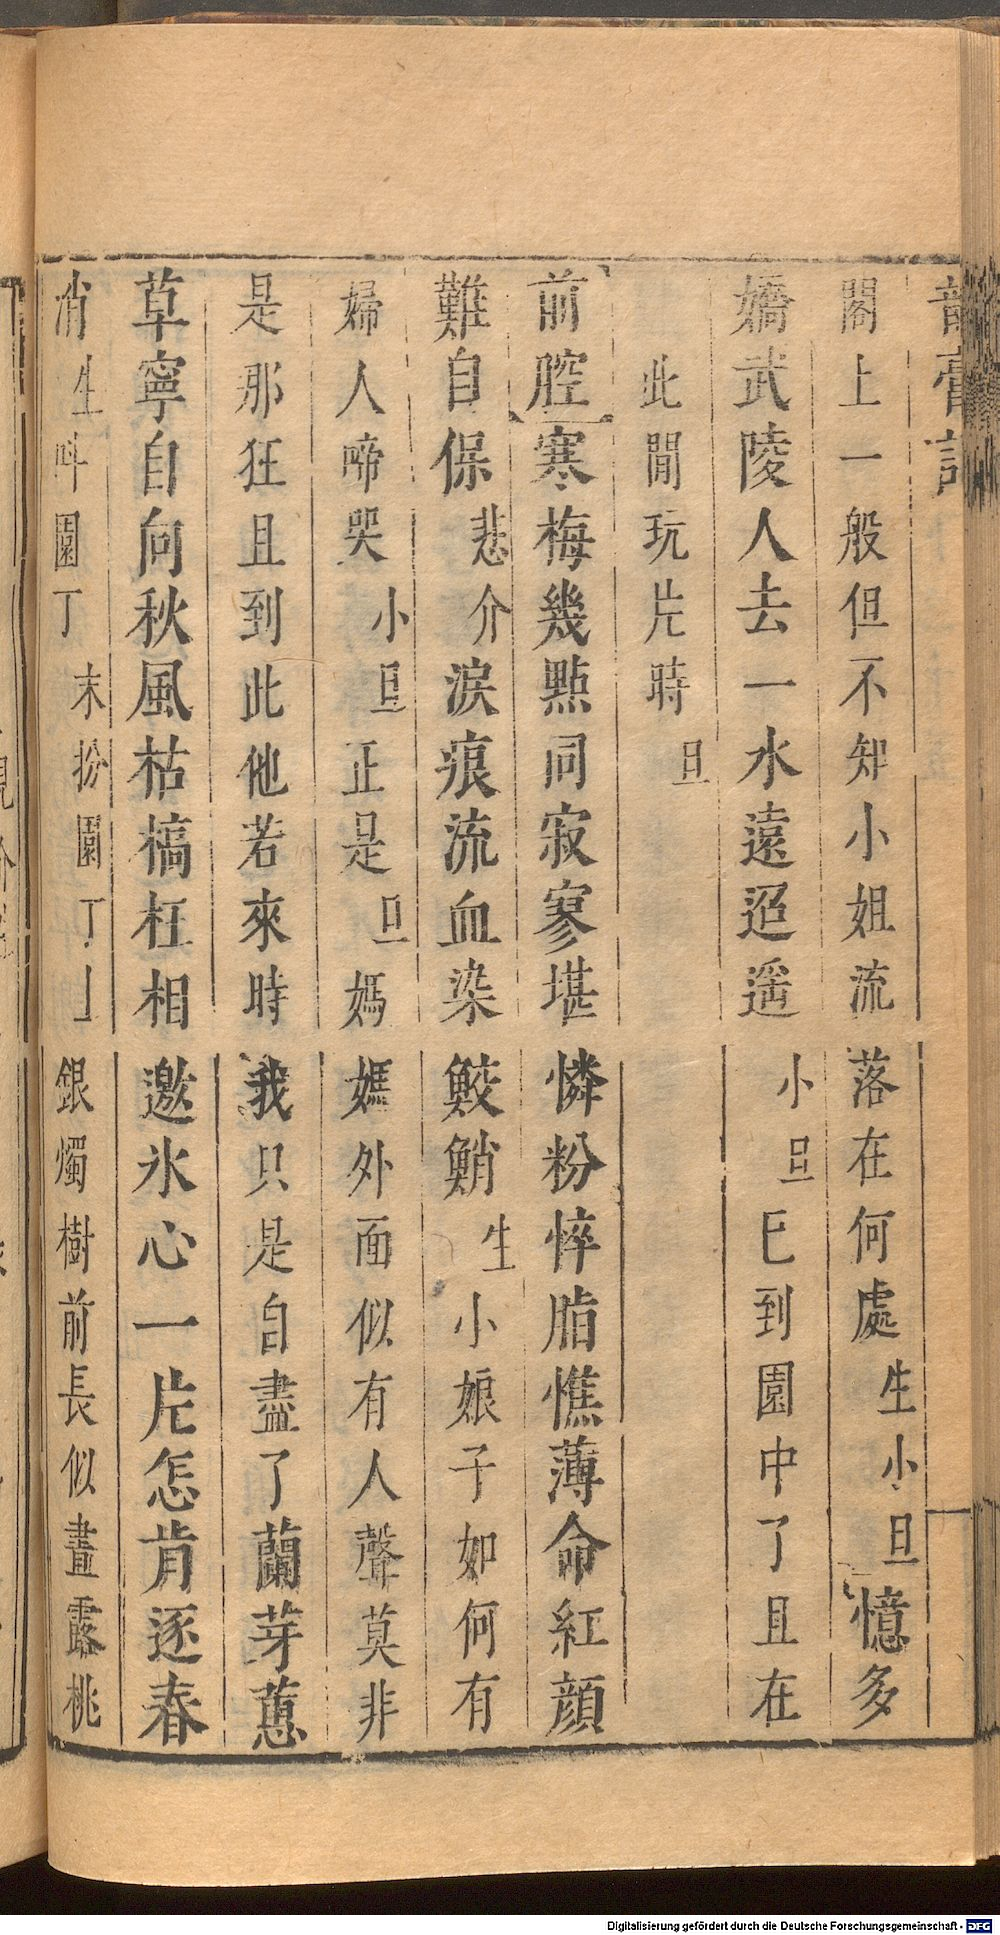 韶膏記
閣上一般但不知小姐流落在何處生小旦憶多
嬌武陵人去一水遠迢遥小旦巳到園中了且在
此閒玩片時旦
前腔寒梅幾點同寂寥堪憐粉悴脂憔薄命紅顔
難自保悲介淚痕流血染鮫鮹生小娘子如何有
婦人啼哭小旦正是旦媽媽外面似有人聲莫非
是那狂且到此他若來時我只是自盡了蘭芽蕙
草寧自向秋風枯槁枉相邀氷心一片怎肯逐春
消生呌園丁末扮園丁上銀燭樹前長似晝露桃
Digitalisierung gefördert durch die Deutsche Forschungsgemeinschaft - DFG